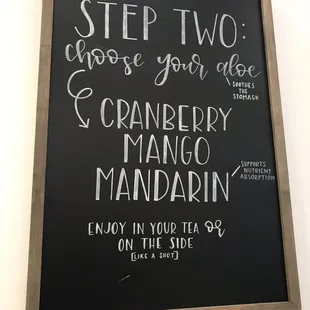 STEP TWO:
choose your aloe
SOOTHES
THE
STOMACH
CRANBERRY
MANGO
MANDARIN
SUPPORTS
NUTRIENT
ABSORPTION
ENJOY IN YOUR TEA OR
ON THE SIDE
[LIKE A SHOT]